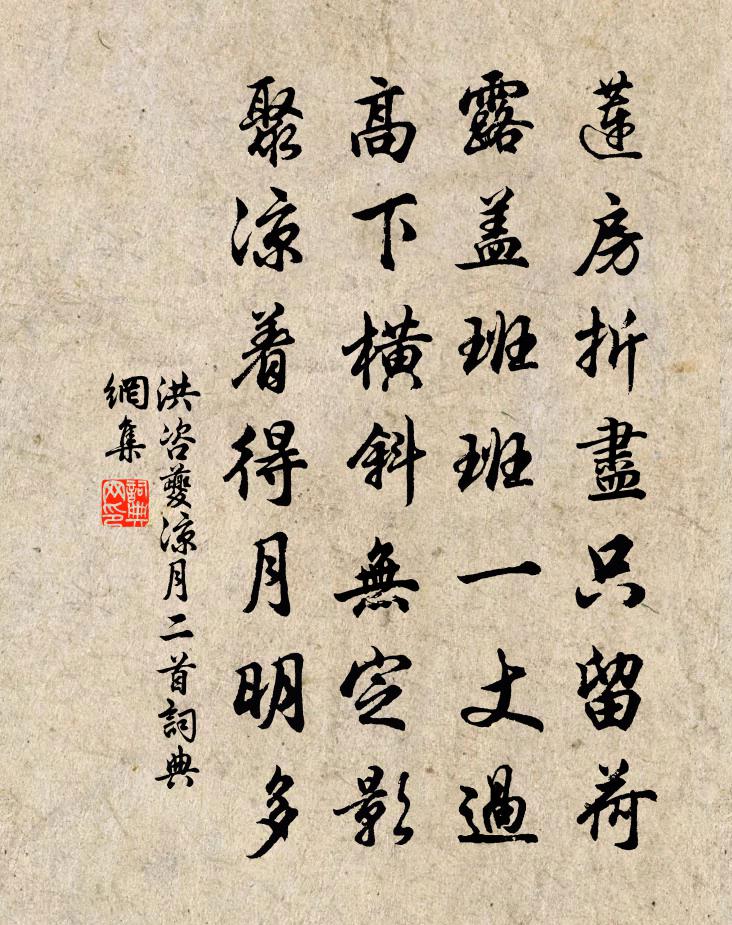 蓮房折盡只留荷
露盖班班一丈過
高下橫斜無定影
聚凉着得月明多
洪咨夔凉月二首詞典
網集
詞典网印